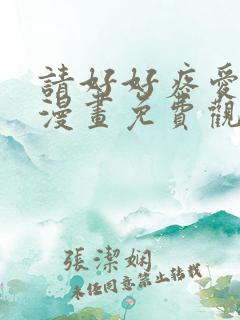 請好好疼愛
漫畫免費觀
張潔嫻
未經同意禁止轉載